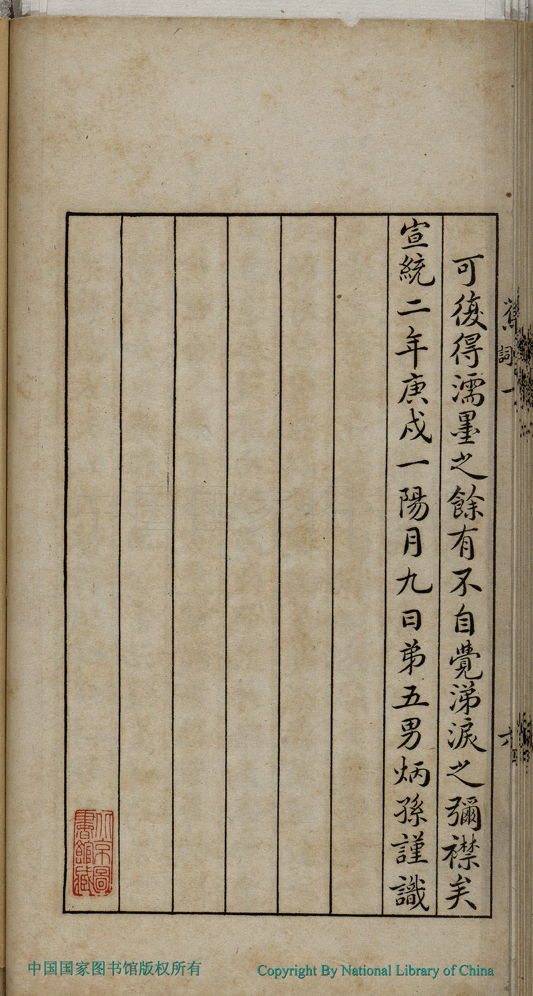 可復得濡墨之餘有不自覺涕淚之彌襟矣
宣統二年庚戌一陽月九日第五男炳孫謹識
詞一
六
北京圖
書館藏
中国国家图书馆版权所有
Copyright By National Library of China